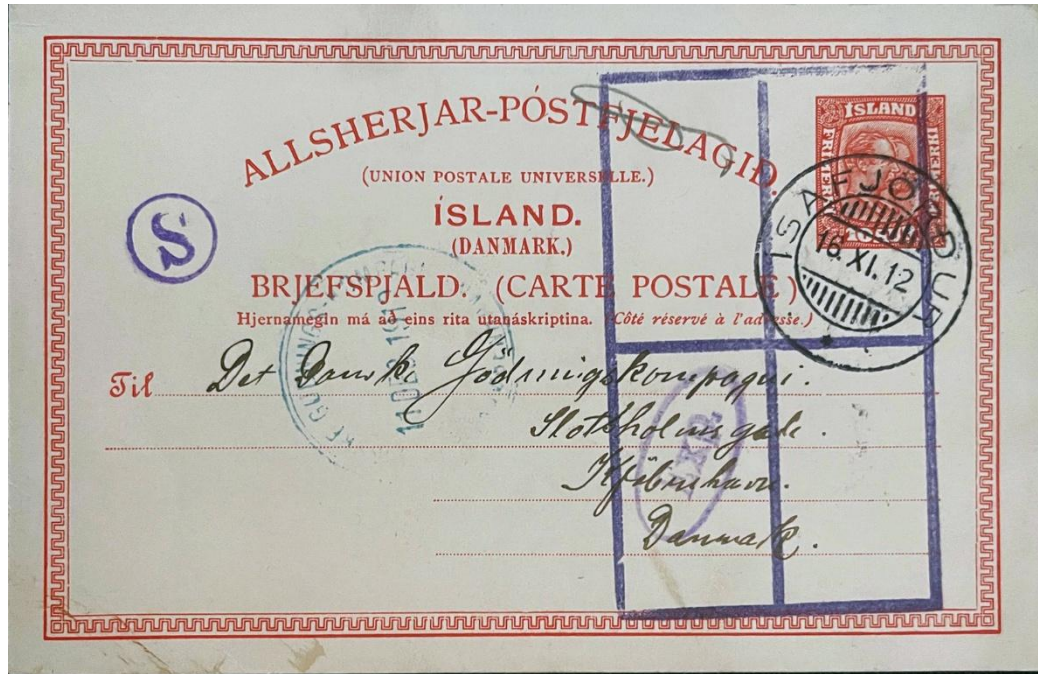 ALLSHERJAR-PÓSTFJELAGIÐ.
(UNION POSTALE UNIVERSELLE.)
ÍSLAND.
(DANMARK.)
BRJEFSPJALD. (CARTE POSTALE)
Hjernamegin má að eins rita utanáskriptina. (Côté réservé à l'adresse.)
ÍSLAND
ISAFJÖRÐUR
16.XI.12
S
Til Det Danske Gödningskompagni.
Slotsholmsgade.
Kjöbenhavn.
Danmark.